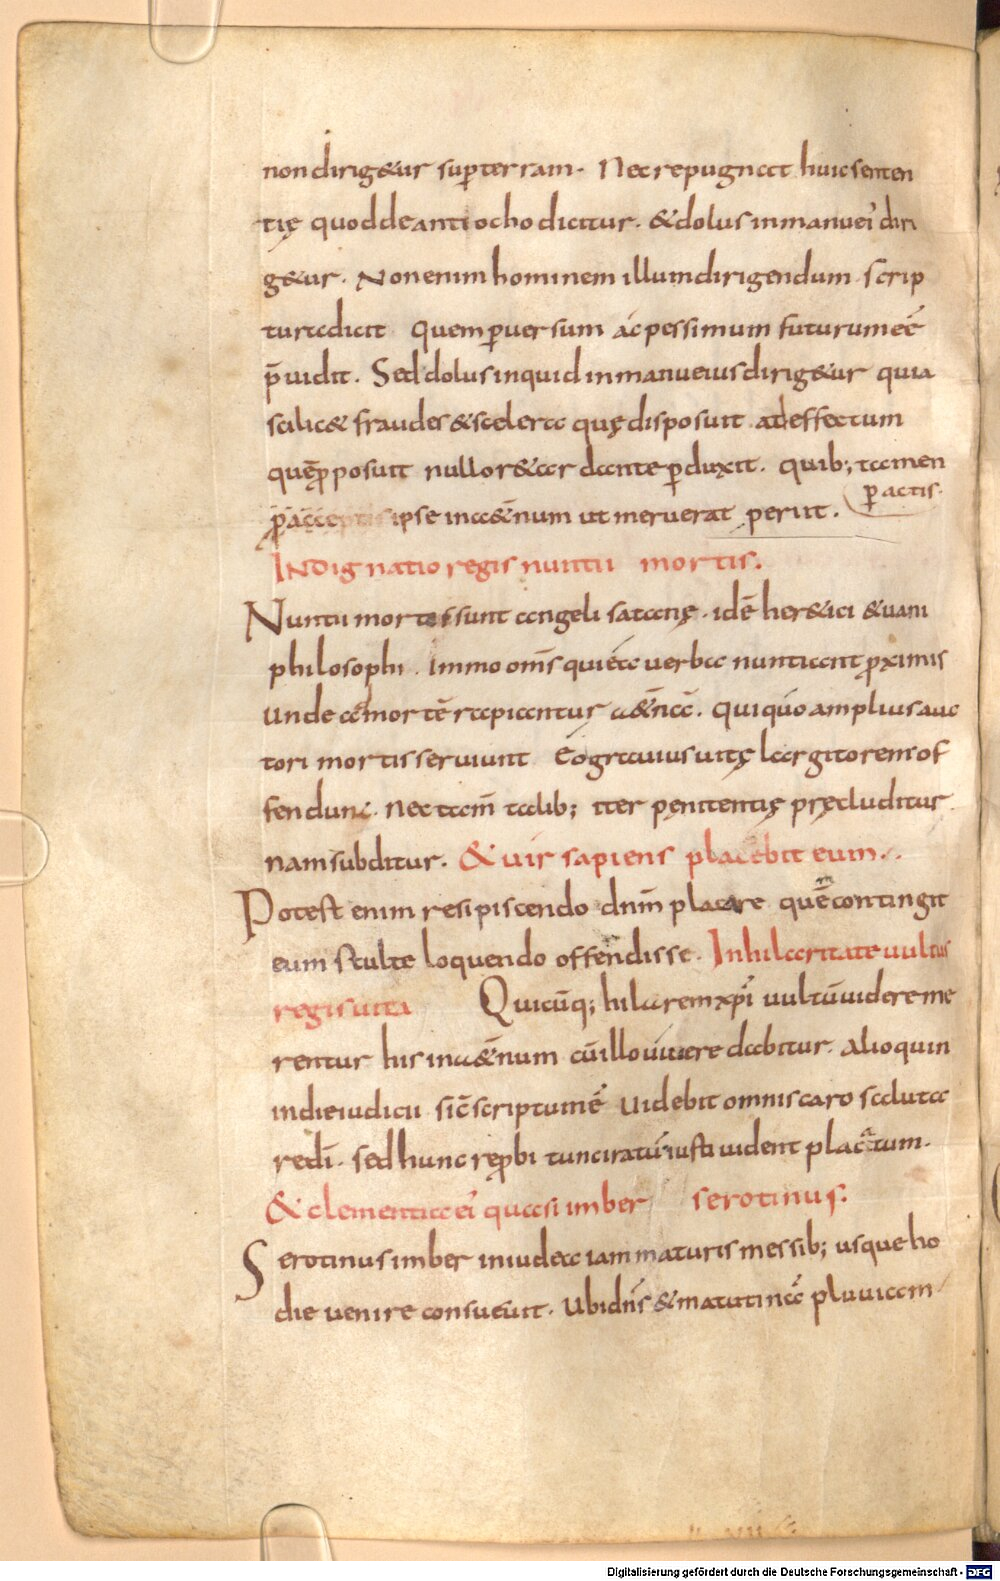 non dirig&ur sup̄ terram. Nec repugnat huic senten
tię quod de antiocho dicitur. & dolus in manu ei' diri
g&ur. Non enim hominem illum dirigendum scrip
tura dicit Quem puersum ac pessimum futurum eē
p̄uidit. Sed dolus inquid in manu eius dirig&ur quia
scilic& fraudes & scelera quę disposuit ad effectum
quę pposuit nullo r&ardante pduxit. quib; tamen
p actis.
ipse in a&ēnum ut meruerat periit.
Indignatio regis nuntii mortis.
Nuntii mortis sunt angeli satanę. idē her&ici & uani
philosophi. Immo om̄s qui ea uerba nuntiant proximis
unde a morte rapiantur a&ēna. qui quo amplius auc
tori mortis seruiunt Eo grauius uitę largitorem of
fendunt. nec tam̄ talib; iter pęnitentię pręcluditur.
nam subditur. & uir sapiens placebit eum.
Potest enim resipiscendo dn̄m placare quem contingit
eum stulte loquendo offendisse. In hilaritate uultus
regis uita Quicūq; hilarem xpi uultū uidere me
rentur his in a&ēnum cū illo uiuere dabitur. alioquin
in die iudicii sic scriptum ē uidebit omnis caro saluta
re di. sed hunc reprobi tunc iratū iusti uident placatum.
& clementia ei' quasi imber serotinus.
Serotinus imber in iudea iam maturis messib; usque ho
die uenire consueuit. ubi dn̄s & matutina pluuiam